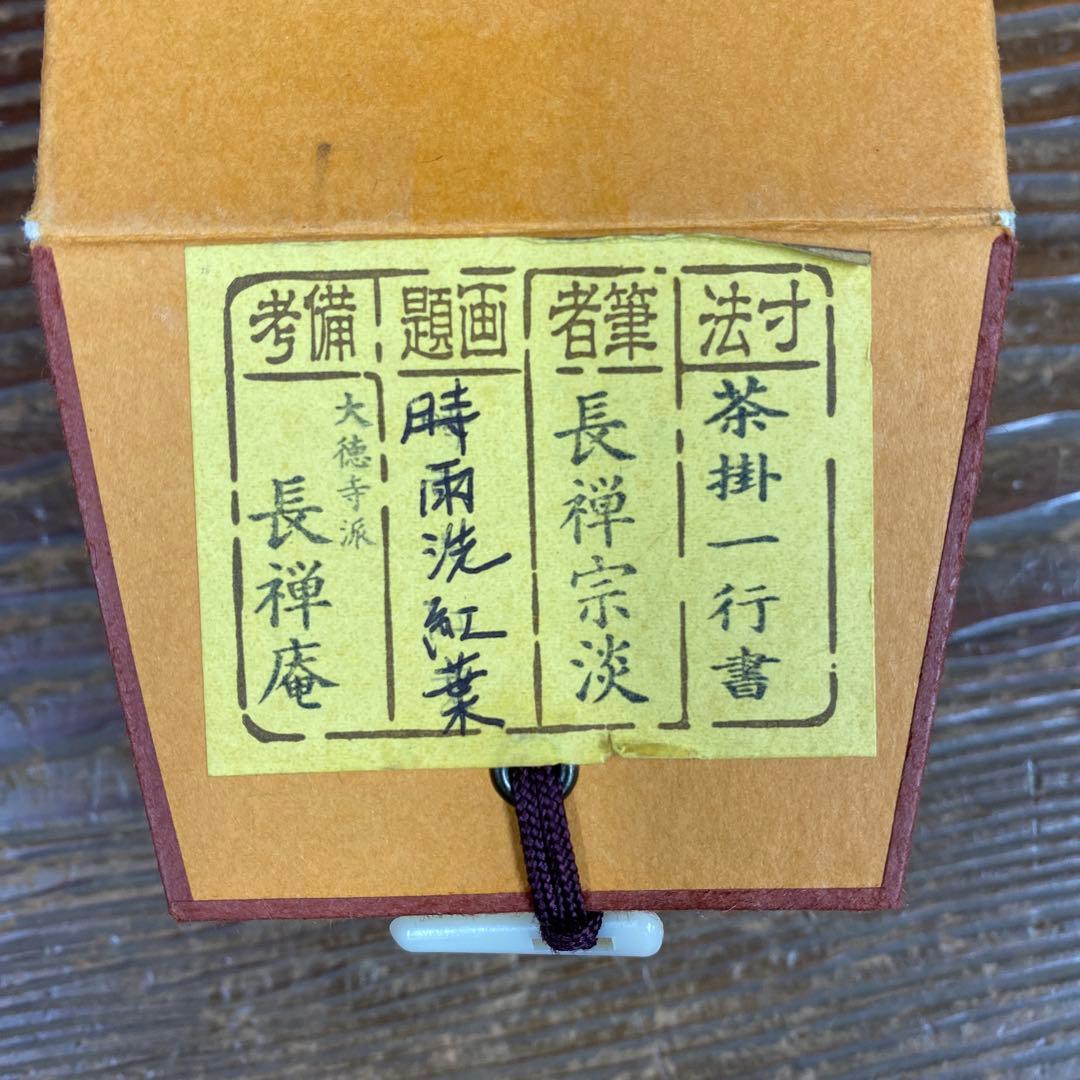 寸法
茶掛一行書
筆者
長禅宗淡
画題
時雨洗紅葉
備考
大徳寺派
長禅庵